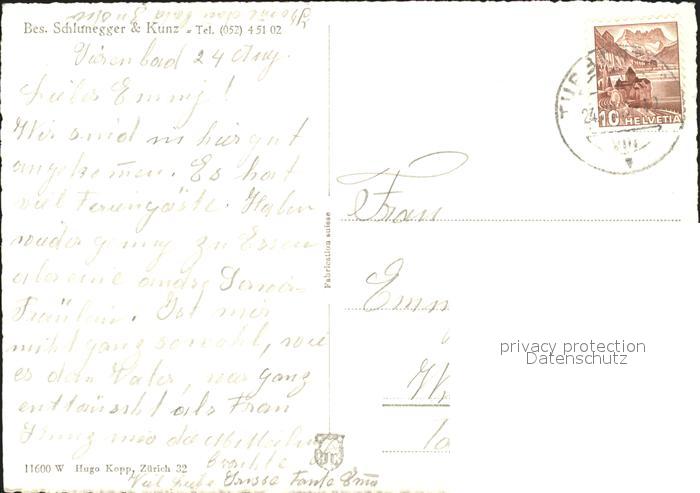 Bes. Schlunegger & Kunz - Tel. (052) 4 51 02
Turenbad 24 Aug.
Liebes Emmy!
Wir sind in hier gut
angekommen. Es hat
viel Feriengäste. Haben
wieder genug zu Essen
aber eine andre Servier-
Fräulein. Ist mir
nicht ganz so wohl, wie
es dem Vater, war ganz
enttäuscht als Frau
Kunz mir die
brachte
Viel liebe Grüsse Tante Emma
11600 W Hugo Kopp, Zürich 32
Fabrication suisse
HELVETIA
10
24.
VIII
Frau
Emm
privacy protection
Datenschutz